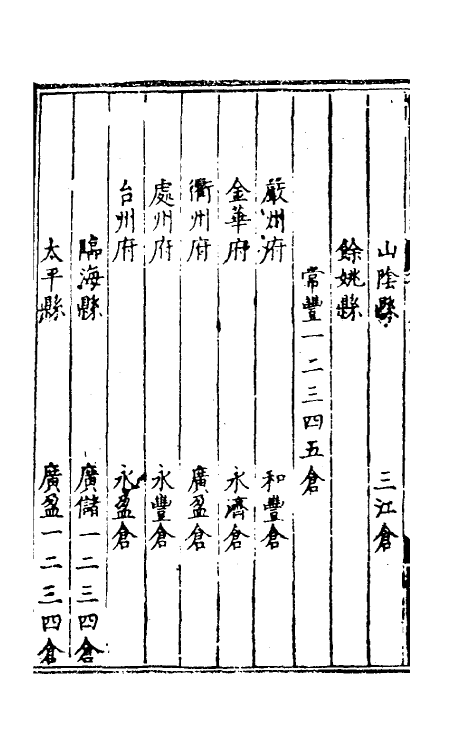 山陰縣 三江倉
餘姚縣
常豐一二三四五倉
嚴州府 和豐倉
金華府 永濟倉
衢州府 廣盈倉
處州府 永豐倉
台州府 永盈倉
臨海縣 廣儲一二三四倉
太平縣 廣盈一二三四倉